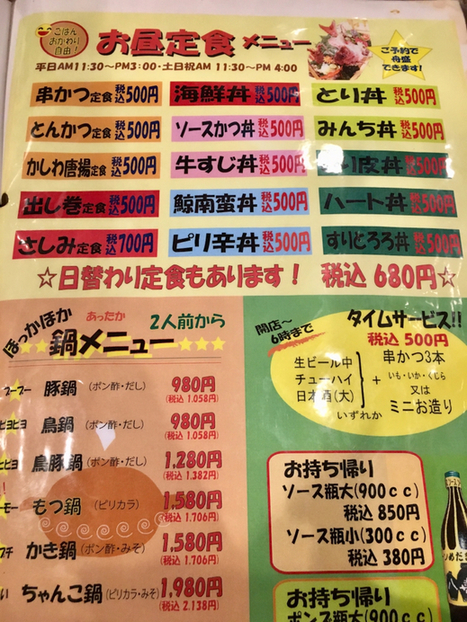 ごはん
おかわり
自由！
お昼定食メニュー
平日AM11:30～PM3:00・土日祝AM 11:30～PM 4:00
ご予約で
舟盛
できます！
串かつ定食 税込500円
海鮮丼 税込500円
とり丼 税込500円
とんかつ定食 税込500円
ソースかつ丼 税込500円
みんち丼 税込500円
かしわ唐揚定食 税込500円
牛すじ丼 税込500円
り皮丼 税込500円
出し巻定食 税込500円
鯨南蛮丼 税込500円
ハート丼 税込500円
さしみ定食 税込700円
ピリ辛丼 税込500円
すりとろろ丼 税込500円
☆日替わり定食もあります！ 税込 680円☆
ほっかほか
あったか
2人前から
鍋メニュー
ブーブー 豚鍋 (ポン酢・だし) 980円
(税込 1.058円)
ヒヨヒヨ 鳥鍋 (ポン酢・だし) 980円
(税込 1.058円)
鳥豚鍋 (ポン酢・だし) 1,280円
(税込 1.382円)
モー もつ鍋 (ピリカラ) 1,580円
(税込 1.706円)
かき鍋 (ポン酢・みそ) 1,580円
(税込 1.706円)
ちゃんこ鍋 (ピリカラ・みそ) 1,980円
(税込 2.138円)
開店～
6時まで
タイムサービス!!
税込 500円
生ビール中
チューハイ
日本酒(大)
いずれか
+
串かつ3本
いも・いか・くじら
又は
ミニお造り
お持ち帰り
ソース瓶大(900cc)
税込 850円
ソース瓶小(300cc)
税込 380円
お持ち帰り
ポンズ瓶大(900cc)